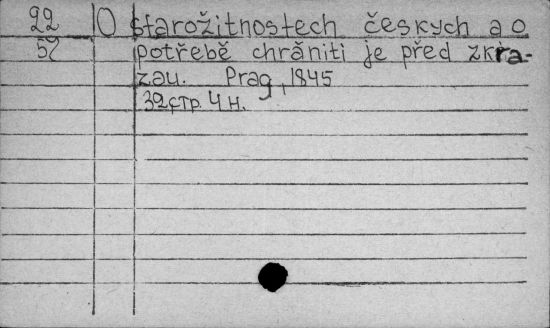 22 O starožitnostech českych a o
57 potřebě chrániti je před zkra-
zau. Prag, 1845
32стр. 4 н.